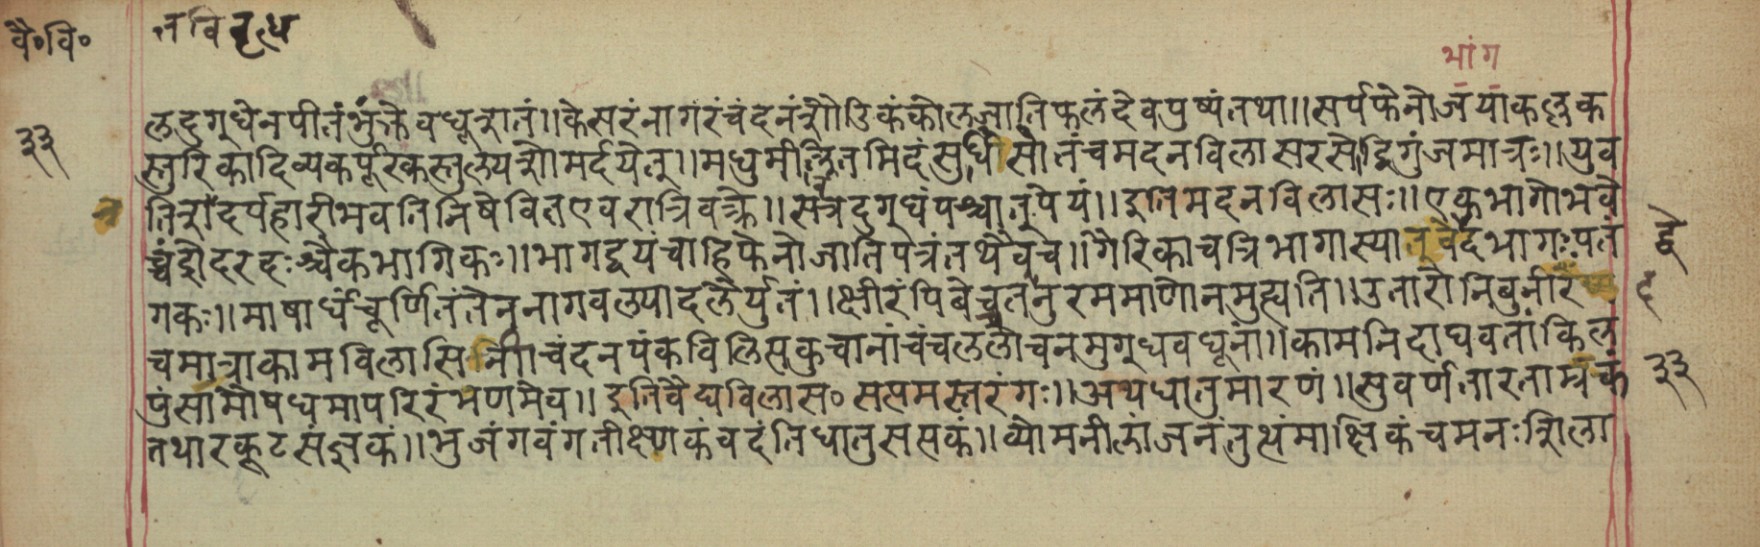 वै॰वि॰
न वि नृत्य
भांग
लदुग्धेन पीतं भुंक्तेवधूत्रातं॥ केसरं नागरं चंदनं त्रौटिकंकोलजातिफलं देवपुष्पं तथा॥ सर्पफेनोजयाकल्लक
३३
स्तुरिकादिव्यकर्पूरकस्तुल्य मर्दयेत्॥ मधुमीलितमिदं सुधी सोतं च मदनविलासरसोद्विगुंजमात्रः॥ युव
तिनां दर्पहारी भवति निषेवित एव रात्रिवक्त्रे॥ सत्रदुग्धं पश्चात् पेयं॥ इति मदनविलासः॥ एकभागो भवे
च्चंद्रोदरदः श्चैकभागिकः॥ भागद्वयं चाहिफेनो जातिपत्रं तथैव च॥ गैरिका च त्रिभागास्या वेदभागः पतं
द्वे
गकः॥ माषार्धं चूर्णितं तेन नागवल्यादलैर्युतं॥ क्षीरं पिबेच्च रममाणो न मुह्यति॥ उतारो निंबुनीरं
च मात्राकामविलासिनी॥ चंदनपंकविलिप्तकुचानां चंचललोचनमुग्धवधूनां॥ कामनिदाघवतां किल
पुंसामौषधमापरिरंभणमेव॥ इति वैद्यविलास॰ सप्तमस्तरंगः॥ अथ धातुमारणं॥ सुवर्णतारताम्रकं
३३
तथारकूटसंज्ञकं॥ भुजंगवंगतीक्ष्णकं वदंति धातुसप्तकं॥ व्योमनीलांजनं तुत्थं माक्षिकं च मनःशिला